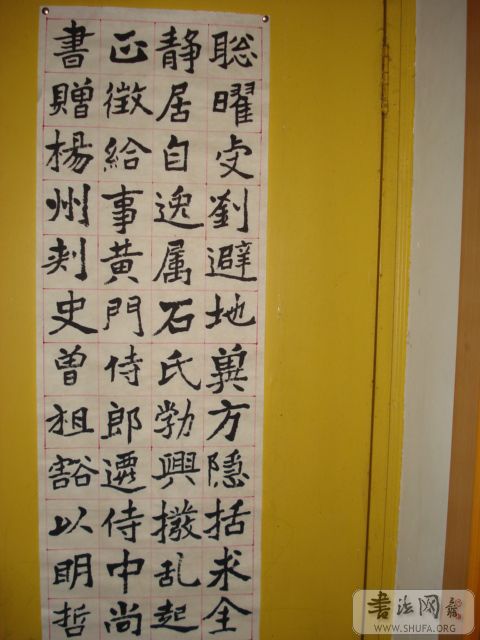 聡曜受劉避地兾方隱括求全
静居自逸属石氏勃興撥乱起
正徵給事黄門侍郎遷侍中尚
書贈楊州刾史曽祖豁以明哲
書法网
WWW.SHUFA.ORG